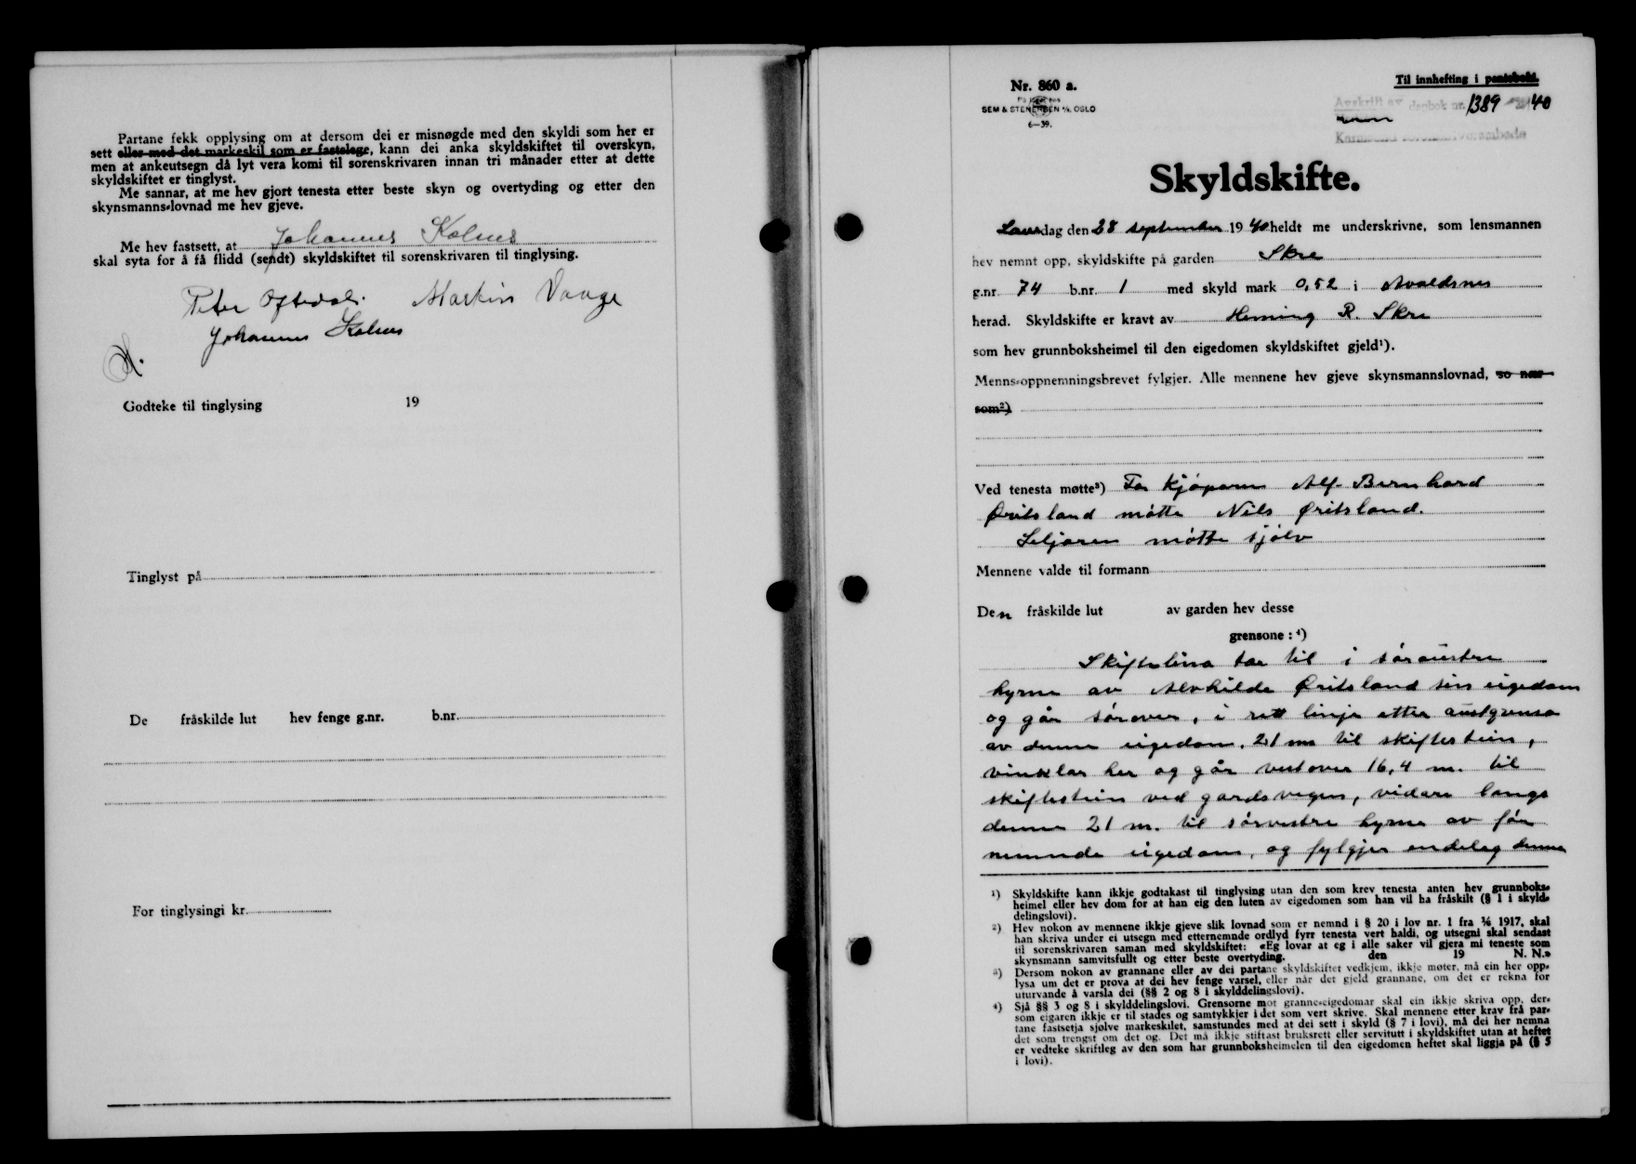 Partane fekk opplysing om at dersom dei er misnøgde med den skyldi som her er
sett eller med det markeskil som er fastslege, kann dei anka skyldskiftet til overskyn,
men at ankeutsegn då lyt vera komi til sorenskrivaren innan tri månader etter at dette
skyldskiftet er tinglyst.
Me sannar, at me hev gjort tenesta etter beste skyn og overtyding og etter den
skynsmanns-lovnad me hev gjeve.
Me hev fastsett, at Johannes Kolnes
skal syta for å få flidd (sendt) skyldskiftet til sorenskrivaren til tinglysing.
Peter Oftedal. Martin Vaage
Johannes Kolnes
Godteke til tinglysing 19
Tinglyst på
De fråskilde lut hev fenge g.nr. b.nr.
For tinglysingi kr.
Nr. 860 a.
SEM & STENERSEN A/S, OSLO
6—39.
Til innhefting i pantebok.
Avskrift av dagbok nr. 1389 40
Skyldskifte.
Laurdag den 28 september 1940 heldt me underskrivne, som lensmannen
hev nemnt opp, skyldskifte på garden Skre
g.nr. 74 b.nr. 1 med skyld mark 0,52 i Avaldsnes
herad. Skyldskifte er kravt av Heming R. Skre
som hev grunnboksheimel til den eigedomen skyldskiftet gjeld¹).
Menns-oppnemningsbrevet fylgjer. Alle mennene hev gjeve skynsmannslovnad, so nær
som²)
Ved tenesta møtte³) For kjøparen Alf Bernhard
Øritsland møtte Nils Øritsland.
Seljaren møtte sjølv
Mennene valde til formann
Den fråskilde lut av garden hev desse
grensone: ⁴)
Skiftelina tar til i søraustre
hyrna av Alvhilde Øritsland sin eigedom
og går sørover, i rett linje etter austgrensa
av denne eigedom, 21 m til skiftestein,
vinklar her og går vestover 16,4 m. til
skiftestein ved gardsvegen, vidare langs
denne 21 m. til sørvestre hyrna av før
nemnde eigedom, og fylgjer endeleg denne
¹) Skyldskifte kann ikkje godtakast til tinglysing utan den som krev tenesta anten hev grunnboks-
heimel eller hev dom for at han eig den luten av eigedomen som han vil ha fråskilt (§ 1 i skyld-
delingslovi).
²) Hev nokon av mennene ikkje gjeve slik lovnad som er nemnd i § 20 i lov nr. 1 fra 1/6 1917, skal
han skriva under ei utsegn med etternemnde ordlyd fyrr tenesta vert haldi, og utsegni skal sendast
til sorenskrivaren saman med skyldskiftet: «Eg lovar at eg i alle saker vil gjera mi teneste som
skynsmann samvitsfullt og etter beste overtyding. den 19 N. N.»
³) Dersom nokon av grannane eller av dei partane skyldskiftet vedkjem, ikkje møter, må ein her opp-
lysa um det er prova at dei hev fenge varsel, eller når det gjeld grannane, om det er rekna for
uturvande å varsla dei (§§ 2 og 8 i skylddelingslovi).
⁴) Sjå §§ 3 og 8 i skylddelingslovi. Grensorne mot granne-eigedomar skal ein ikkje skriva opp, der-
som eigaren ikkje er til stades og samtykkjer i det som vert skrive. Skal mennene etter krav frå par-
tane fastsetja sjølve markeskilet, samstundes med at dei sett i skyld (§ 7 i lovi), må dei her nemna
det som trengst om det og. Det må ikkje stiftast bruksrett eller servitutt i skyldskiftet utan at heftet
er vedteke skriftleg av den som har grunnboksheimelen til den eigedomen heftet skal liggja på (§ 5
i lovi).